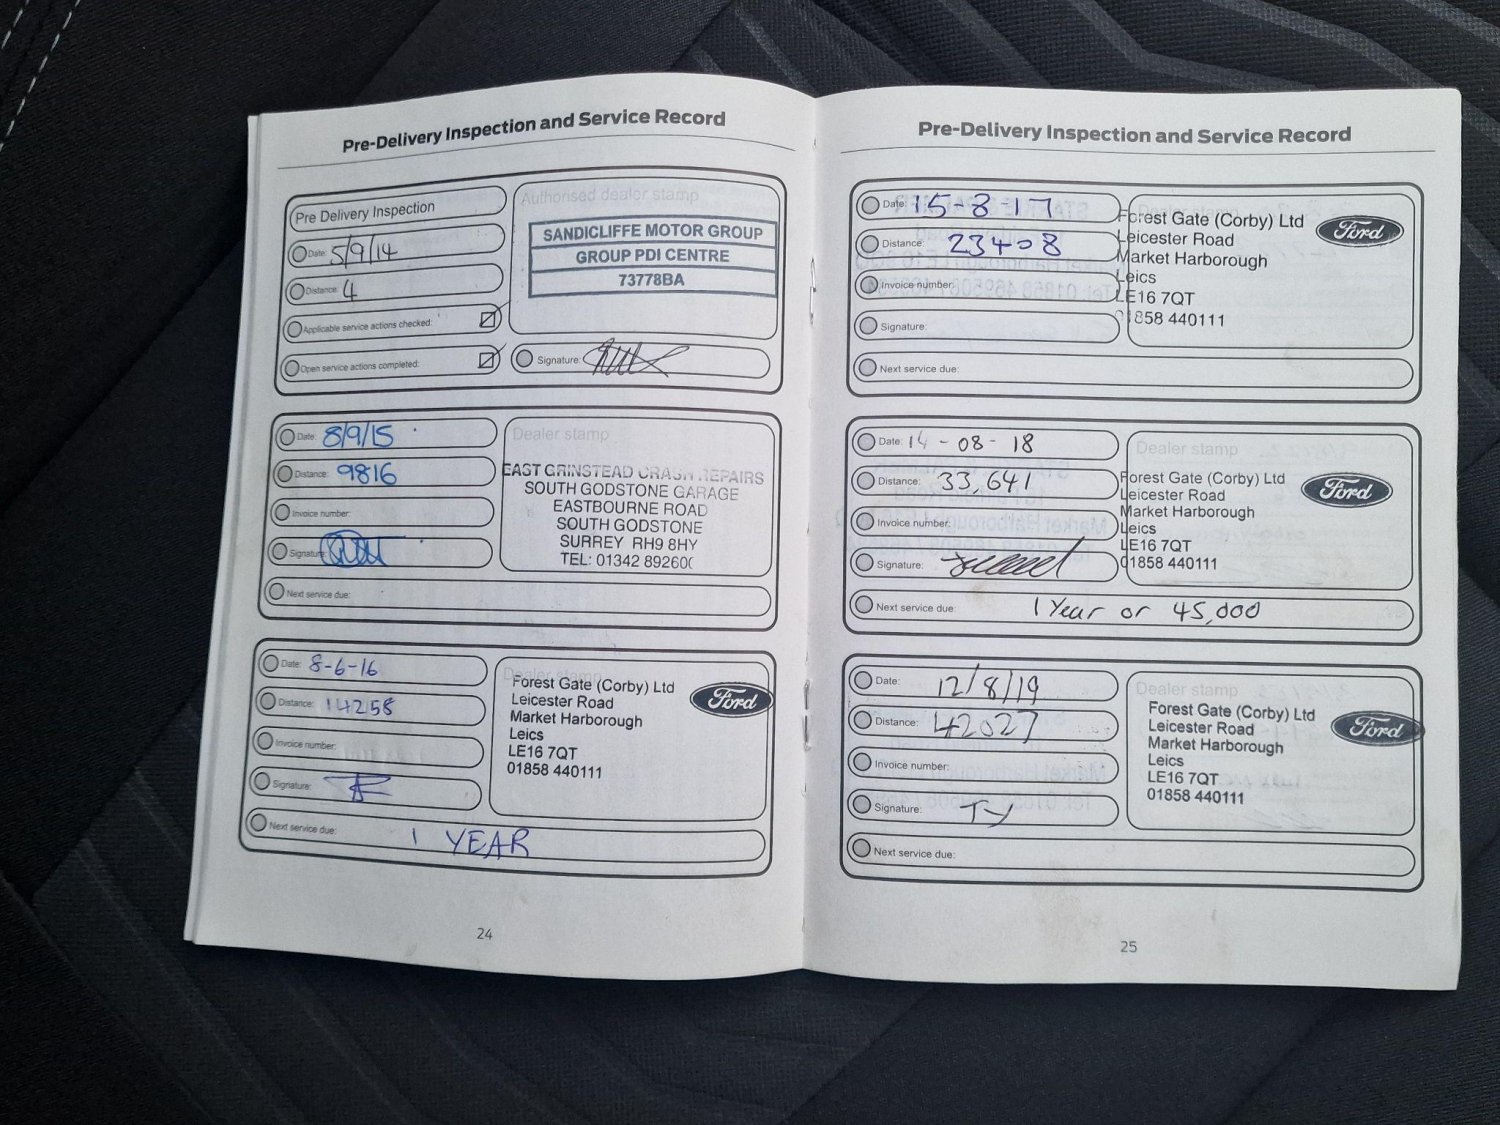 Pre-Delivery Inspection and Service Record
Pre Delivery Inspection
Date: 5/9/14
Distance: 4
Applicable service actions checked:
Open service actions completed:
Authorised dealer stamp
SANDICLIFFE MOTOR GROUP
GROUP PDI CENTRE
73778BA
Signature:
Date: 8/9/15
Distance: 9816
Invoice number:
Signature:
Next service due:
Dealer stamp
EAST GRINSTEAD CRASH REPAIRS
SOUTH GODSTONE GARAGE
EASTBOURNE ROAD
SOUTH GODSTONE
SURREY RH9 8HY
TEL: 01342 892600
Date: 8-6-16
Distance: 14258
Invoice number:
Signature:
Next service due: 1 YEAR
Dealer stamp
Forest Gate (Corby) Ltd
Leicester Road
Market Harborough
Leics
LE16 7QT
01858 440111
Ford
24
Pre-Delivery Inspection and Service Record
Date: 15-8-17
Distance: 23408
Invoice number:
Signature:
Next service due:
Forest Gate (Corby) Ltd
Leicester Road
Market Harborough
Leics
LE16 7QT
01858 440111
Ford
Date: 14-08-18
Distance: 33,641
Invoice number:
Signature:
Next service due: 1 Year or 45,000
Dealer stamp
Forest Gate (Corby) Ltd
Leicester Road
Market Harborough
Leics
LE16 7QT
01858 440111
Ford
Date: 12/8/19
Distance: 42027
Invoice number:
Signature:
Next service due:
Dealer stamp
Forest Gate (Corby) Ltd
Leicester Road
Market Harborough
Leics
LE16 7QT
01858 440111
Ford
25